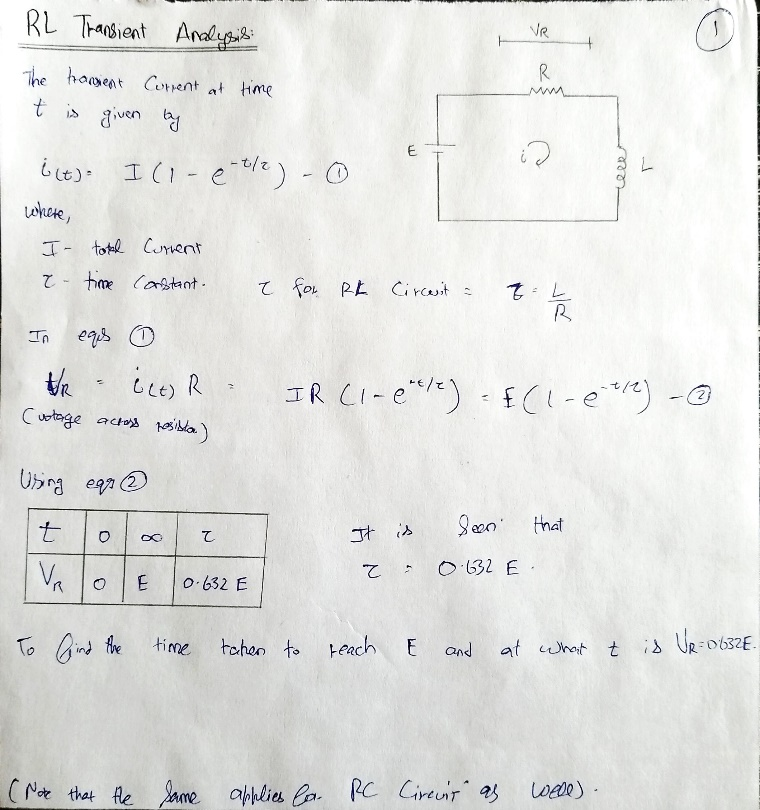 RL Transient Analysis:
①
VR
R
E
i
L
The transient Current at time
t is given by
i(t) = I (1 - e^-t/τ) - ①
where,
I - total Current
τ - time Constant. τ for RL Circuit = τ = L/R
In eqn ①
VR = i(t) R = IR (1 - e^-t/τ) = E (1 - e^-t/τ) - ②
(voltage across resistor)
Using eqn ②
t 0 ∞ τ
VR 0 E 0.632 E
It is Seen that
τ = 0.632 E.
To find the time taken to reach E and at what t is VR=0.632E.
(Note that the Same applies for RC Circuit as well).